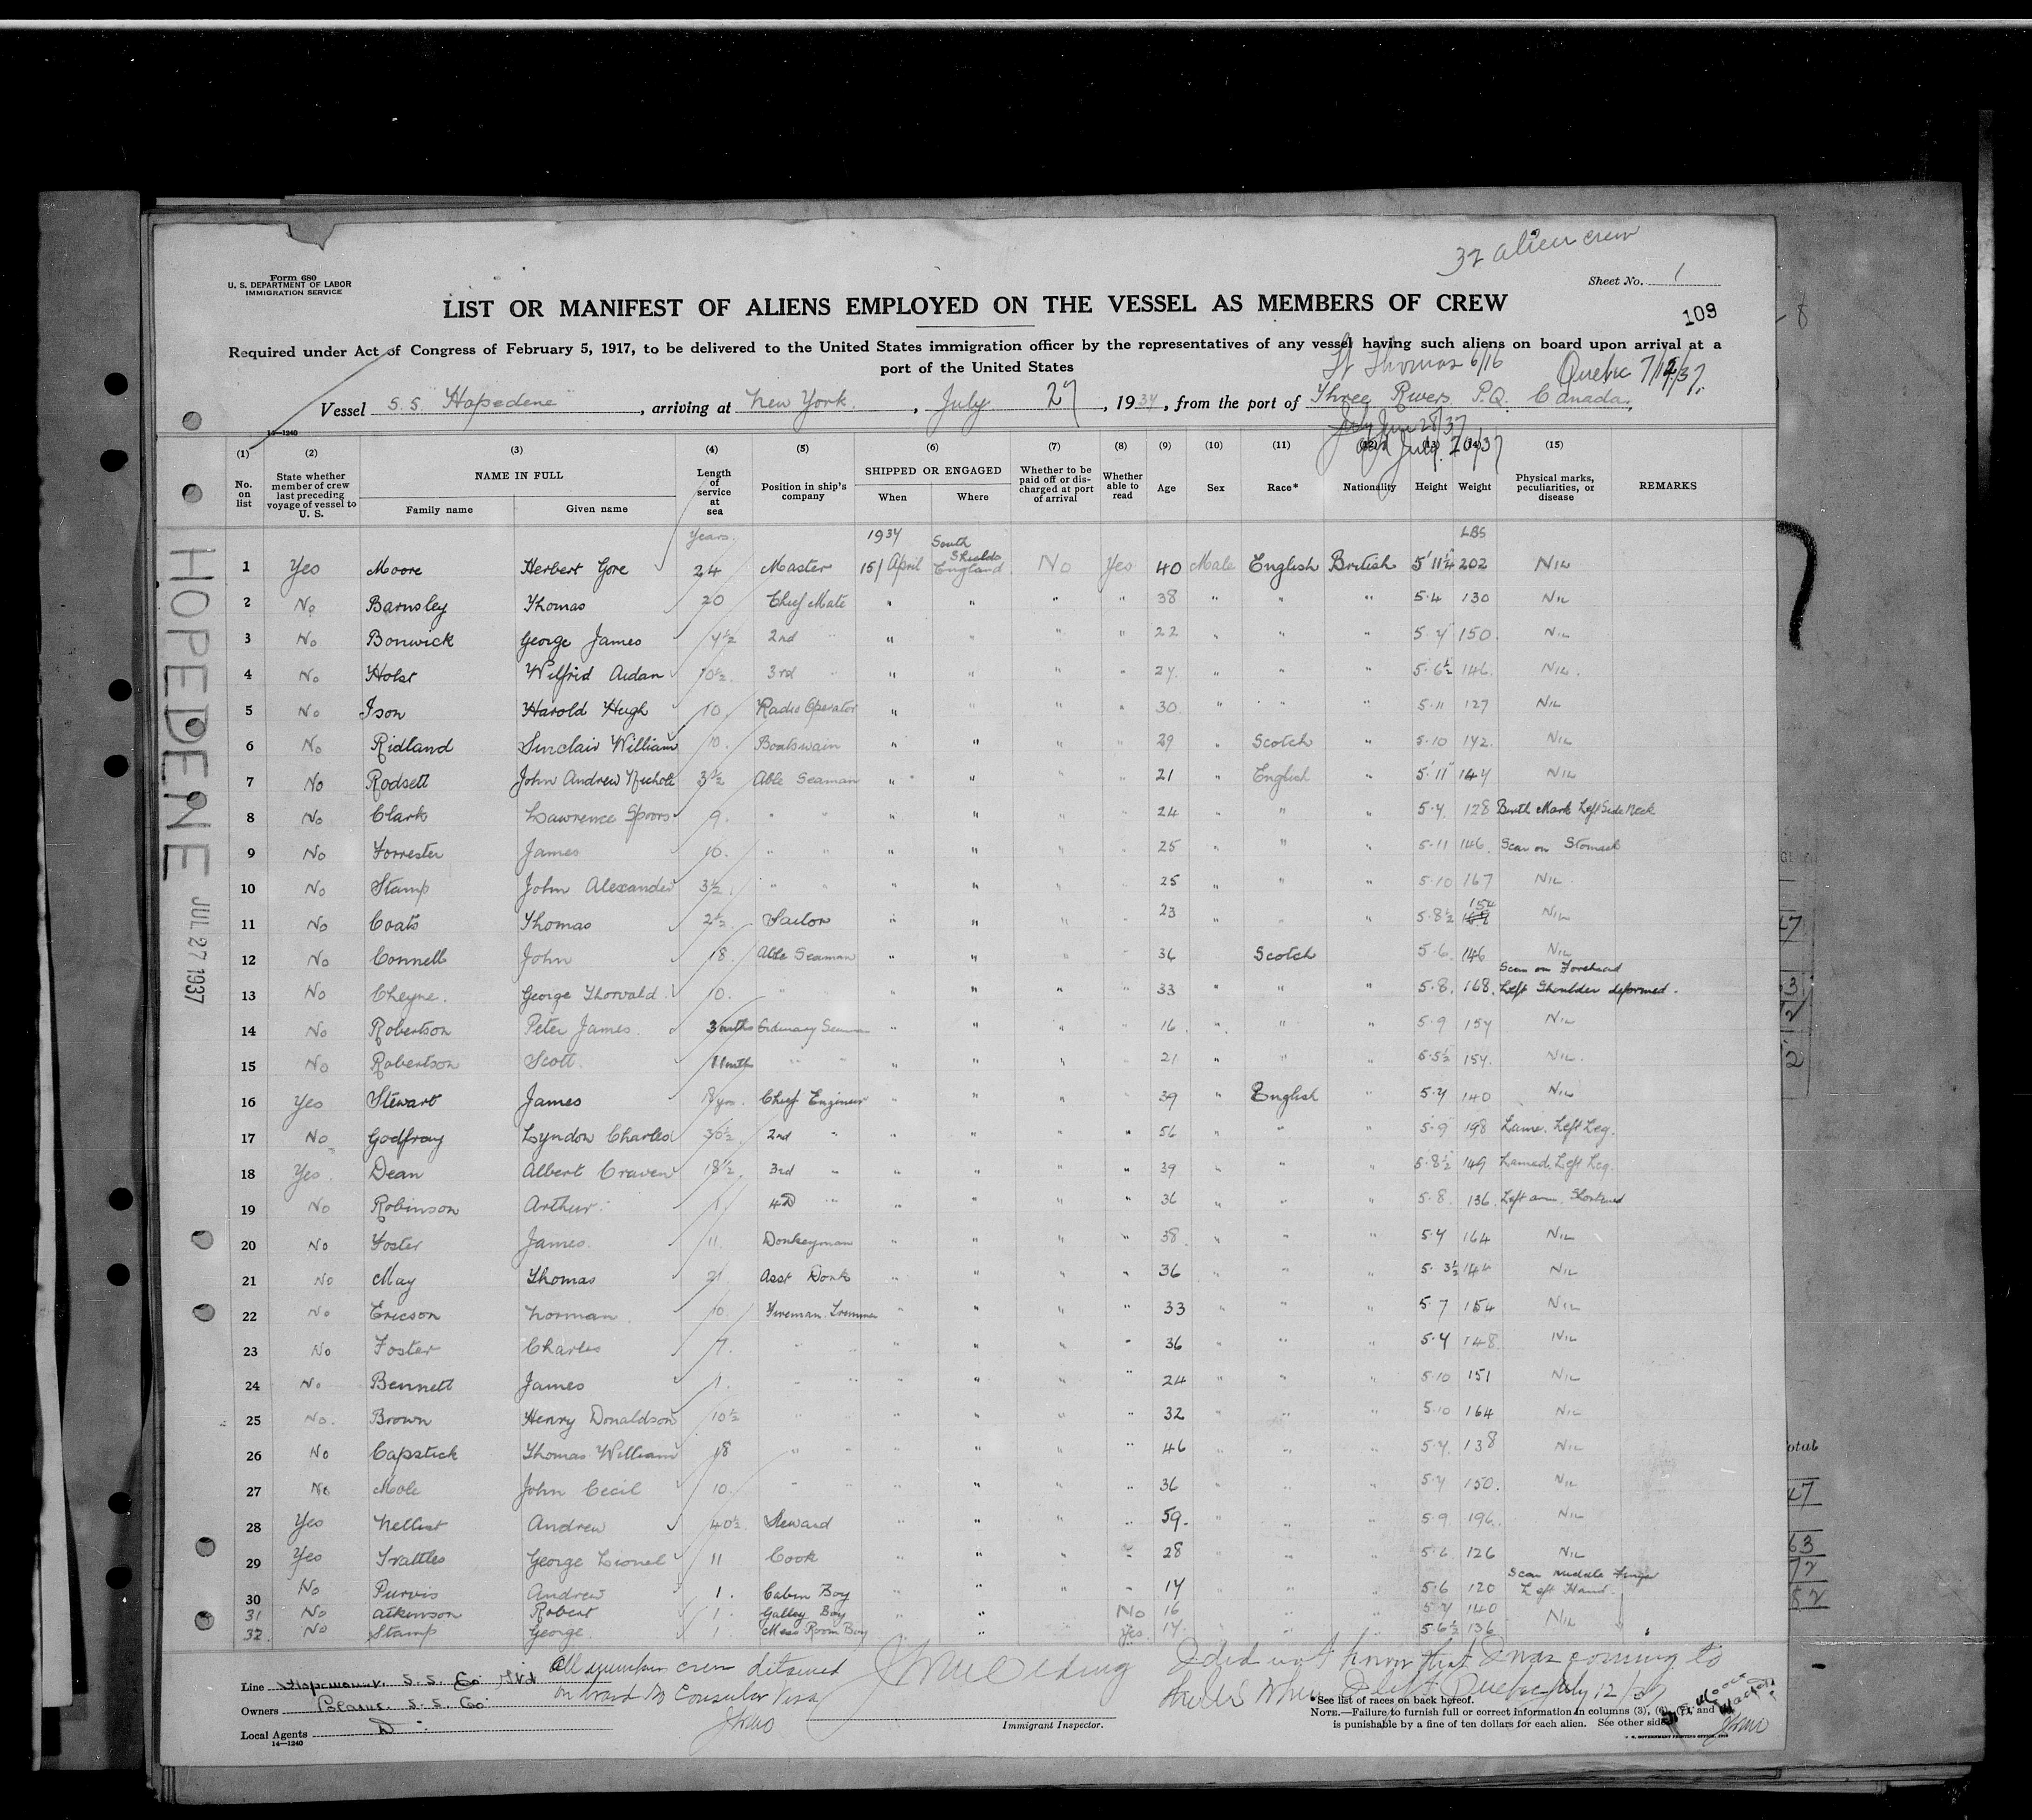 32 alien crew
Form 680
U. S. DEPARTMENT OF LABOR
IMMIGRATION SERVICE
Sheet No. 1
LIST OR MANIFEST OF ALIENS EMPLOYED ON THE VESSEL AS MEMBERS OF CREW
109
Required under Act of Congress of February 5, 1917, to be delivered to the United States immigration officer by the representatives of any vessel having such aliens on board upon arrival at a
port of the United States
St Thomas 6/16 Quebec
Vessel S.S. Hopedene, arriving at New York, July 27, 1937, from the port of Three Rivers P.Q. Canada.
14—1240
(1) (2) (3) (4) (5) (6) (7) (8) (9) (10) (11) (15)
No. on list
State whether member of crew last preceding voyage of vessel to U. S.
NAME IN FULL
Family name Given name
Length of service at sea
Position in ship's company
SHIPPED OR ENGAGED
When Where
Whether to be paid off or discharged at port of arrival
Whether able to read
Age Sex Race* Nationality Height Weight
Physical marks, peculiarities, or disease
REMARKS
Years. 1937 South Shields LBS
1 Yes Moore Herbert Gore 24 Master 15/ April England No Yes 40 Male English British 5'11¼ 202 Nil
2 No Barnsley Thomas 20 Chief Mate " " " " 38 " " " 5.4 130 Nil
3 No Bonwick George James 4½ 2nd " " " " " 22 " " " 5.7 150. Nil
4 No Holst Wilfrid Aidan 10½ 3rd " " " " " 27 " " " 5.6½ 146. Nil.
5 No Ison Harold Hugh 10 Radio Operator " " " " 30 " " " 5.11 127 Nil
6 No Ridland Sinclair William 10. Boatswain " " " " 29 " Scotch " 5.10 142. Nil
7 No Rodsett John Andrew 3½ Able Seaman " " " " 21 " English " 5'11" 147 Nil
8 No Clark Lawrence Spoors 9. " " " " " " 24 " " " 5.7. 128 Birth Mark Left Side Neck
9 No Forrester James 10. " " " " " " 25 " " " 5.11 146. Scar on Stomach
10 No Stamp John Alexander 3½. " " " " " " 25 " " " 5.10 167 Nil.
11 No Coats Thomas 2½. Sailor " " " " 23 " " " 5.8½ 154 Nil
12 No Connell John 18. Able Seaman " " " " 36 Scotch " 5.6. 146 Nil
13 No Cheyne. George Thorvald 10. " " " " " " 33 " " " 5.8. 168. Scar on Forehead Left Shoulder deformed.
14 No Robertson Peter James. 3 mths Ordinary Seaman " " " " 16. " " " 5.9 157 Nil
15 No Robertson Scott. 11 mths " " " " " " 21 " " " 5.5½ 157. Nil.
16 Yes Stewart James 18 yrs. Chief Engineer " " " " 39 " English " 5.7 140 Nil
17 No Godfray Lyndon Charles 30½. 2nd " " " " " 56 " " " 5.9 198 Lame. Left Leg.
18 Yes. Dean Albert Craven 18½. 3rd " " " " " 39 " " " 5.8½ 149 Lamed. Left Leg.
19 No Robinson Arthur 1. " " " " " 36 " " " 5.8. 136. Left arm. Shortened
20 No Foster James. 11. Donkeyman " " " " 38. " " " 5.7 164 Nil
21 No May Thomas 21. Asst Donk " " " " 36 " " " 5.3½ Nil
22 No Ericson Norman. 10. Fireman. Trimmer " " " " 33 " " " 5.7 154 Nil
23 No Foster Charles 7. " " " " " " 36 " " " 5.7 148. Nil
24 No. Bennett James 1. " " " " " " 24 " " " 5.10 151 Nil
25 No. Brown Henry Donaldson 10½ " " " " " " 32 " " " 5.10 164 Nil
26 No Capstick Thomas William 18 " " " " " " 46 " " " 5.7. 138 Nil
27 No Mole John Cecil 10. " " " " " " 36 " " " 5.7 150. Nil
28 Yes Nellist Andrew 40½. Steward " " " " 59. " " " 5.9. 196. Nil
29 Yes Trattles George Lionel 11 Cook " " " " 28 " " " 5.6 126 Nil
30 No Purvis Andrew 1. Cabin Boy " " " " 17 " " " 5.6 120 Scar middle Finger Left Hand.
31 No Atkinson Robert 1. Galley Boy " " " No 16 " " " 5.7 140 Nil
32. No Stamp George. 1 Mess Room Boy " " " Yes. 17. " " " 5.6½ 136.
HOPEDENE JUL 27 1937
Line S. S. Co. Ltd
Owners S. S. Co.
Local Agents
14—1240
All crew detained
on board No Consular Visa
Immigrant Inspector.
I did not know that I was coming to
the US when I left Quebec July 12/37
*See list of races on back hereof.
NOTE.—Failure to furnish full or correct information in columns (3), (6), (7), and
is punishable by a fine of ten dollars for each alien. See other side.